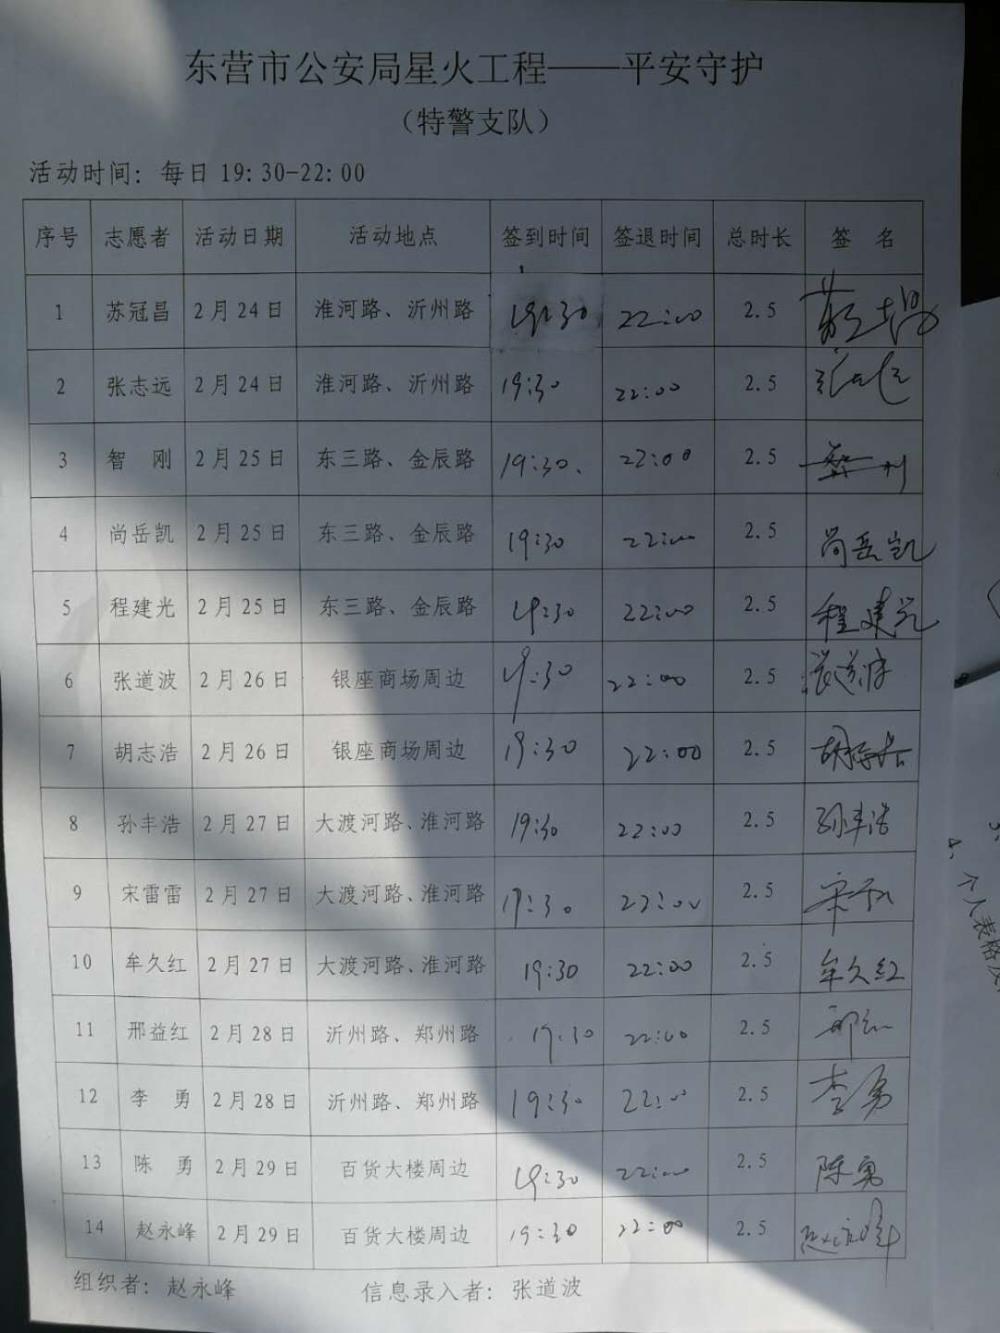 东营市公安局星火工程——平安守护
（特警支队）
活动时间：每日 19:30-22:00
序号 志愿者 活动日期 活动地点 签到时间 签退时间 总时长 签 名
1 苏冠昌 2月24日 淮河路、沂州路 19:30 22:00 2.5
2 张志远 2月24日 淮河路、沂州路 19:30 22:00 2.5
3 智 刚 2月25日 东三路、金辰路 19:30. 22:00 2.5
4 尚岳凯 2月25日 东三路、金辰路 19:30 22:00 2.5 尚岳凯
5 程建光 2月25日 东三路、金辰路 19:30 22:00 2.5 程建光
6 张道波 2月26日 银座商场周边 19:30 22:00 2.5 张道波
7 胡志浩 2月26日 银座商场周边 19:30 22:00 2.5 胡志浩
8 孙丰浩 2月27日 大渡河路、淮河路 19:30 22:00 2.5 孙丰浩
9 宋雷雷 2月27日 大渡河路、淮河路 19:30 22:00 2.5
10 牟久红 2月27日 大渡河路、淮河路 19:30 22:00 2.5 牟久红
11 邢益红 2月28日 沂州路、郑州路 19:30 22:00 2.5
12 李 勇 2月28日 沂州路、郑州路 19:30 22:00 2.5 李勇
13 陈 勇 2月29日 百货大楼周边 19:30 22:00 2.5 陈勇
14 赵永峰 2月29日 百货大楼周边 19:30 22:00 2.5 赵永峰
组织者：赵永峰 信息录入者：张道波
4、个人表格